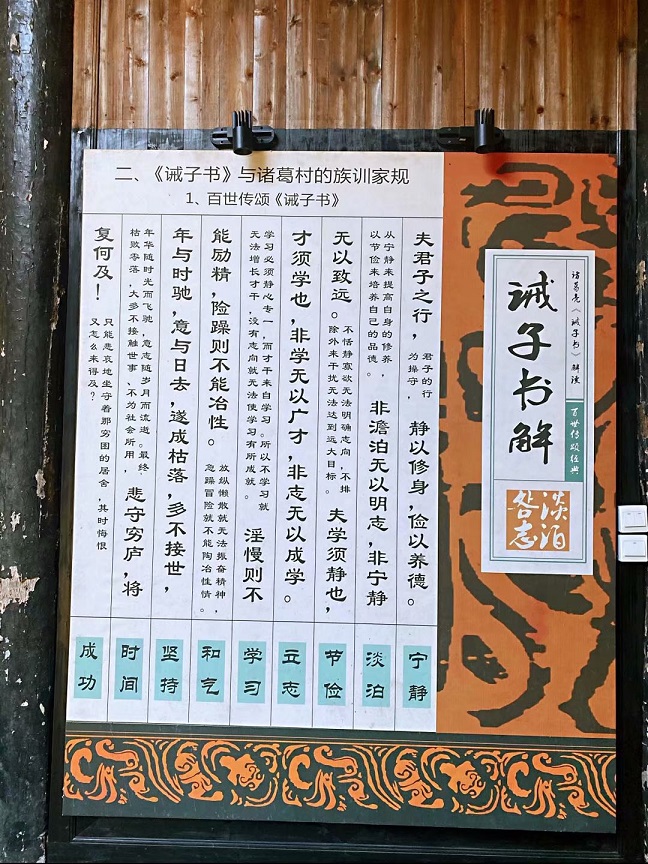 二、《诫子书》与诸葛村的族训家规
1、百世传颂《诫子书》
诸葛亮《诫子书》解读
百世传颂经典
诫子书解
淡泊
志
夫君子之行，
君子的行
为操守，
静以修身，俭以养德。
从宁静来提高自身的修养，
以节俭来培养自己的品德。
非澹泊无以明志，非宁静
无以致远。
不恬静寡欲无法明确志向，不排
除外来干扰无法达到远大目标。
夫学须静也，
才须学也，非学无以广才，非志无以成学。
学习必须静心专一，而才干来自学习。所以不学习就
无法增长才干，没有志向就无法使学习有所成就。
淫慢则不
能励精，险躁则不能冶性。
放纵懒散就无法振奋精神，
急躁冒险就不能陶冶性情。
年与时驰，意与日去，遂成枯落，多不接世，
年华随时光而飞驰，意志随岁月而流逝。最终
枯败零落，大多不接触世事、不为社会所用，
悲守穷庐，将
复何及！
只能悲哀地坐守着那穷困的居舍，其时悔恨
又怎么来得及？
宁静
淡泊
节俭
立志
学习
和气
坚持
时间
成功